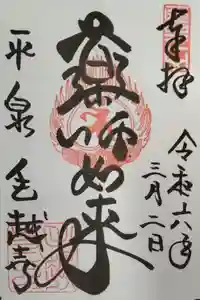 奉拝
令和六年
三月二日
薬師如来
平泉毛越寺